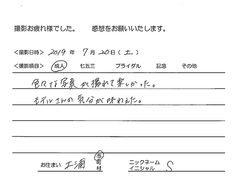 撮影お疲れ様でした。 感想をお願いいたします。
<撮影日時> 2019 年 7 月 20 日 (土)
<撮影項目> 成人 七五三 ブライダル 記念 その他
色々な写真が撮れて楽しかった。
モデルさんの気分が味わえた。
お住まい 土浦 市 町 村 ニックネーム イニシャル S